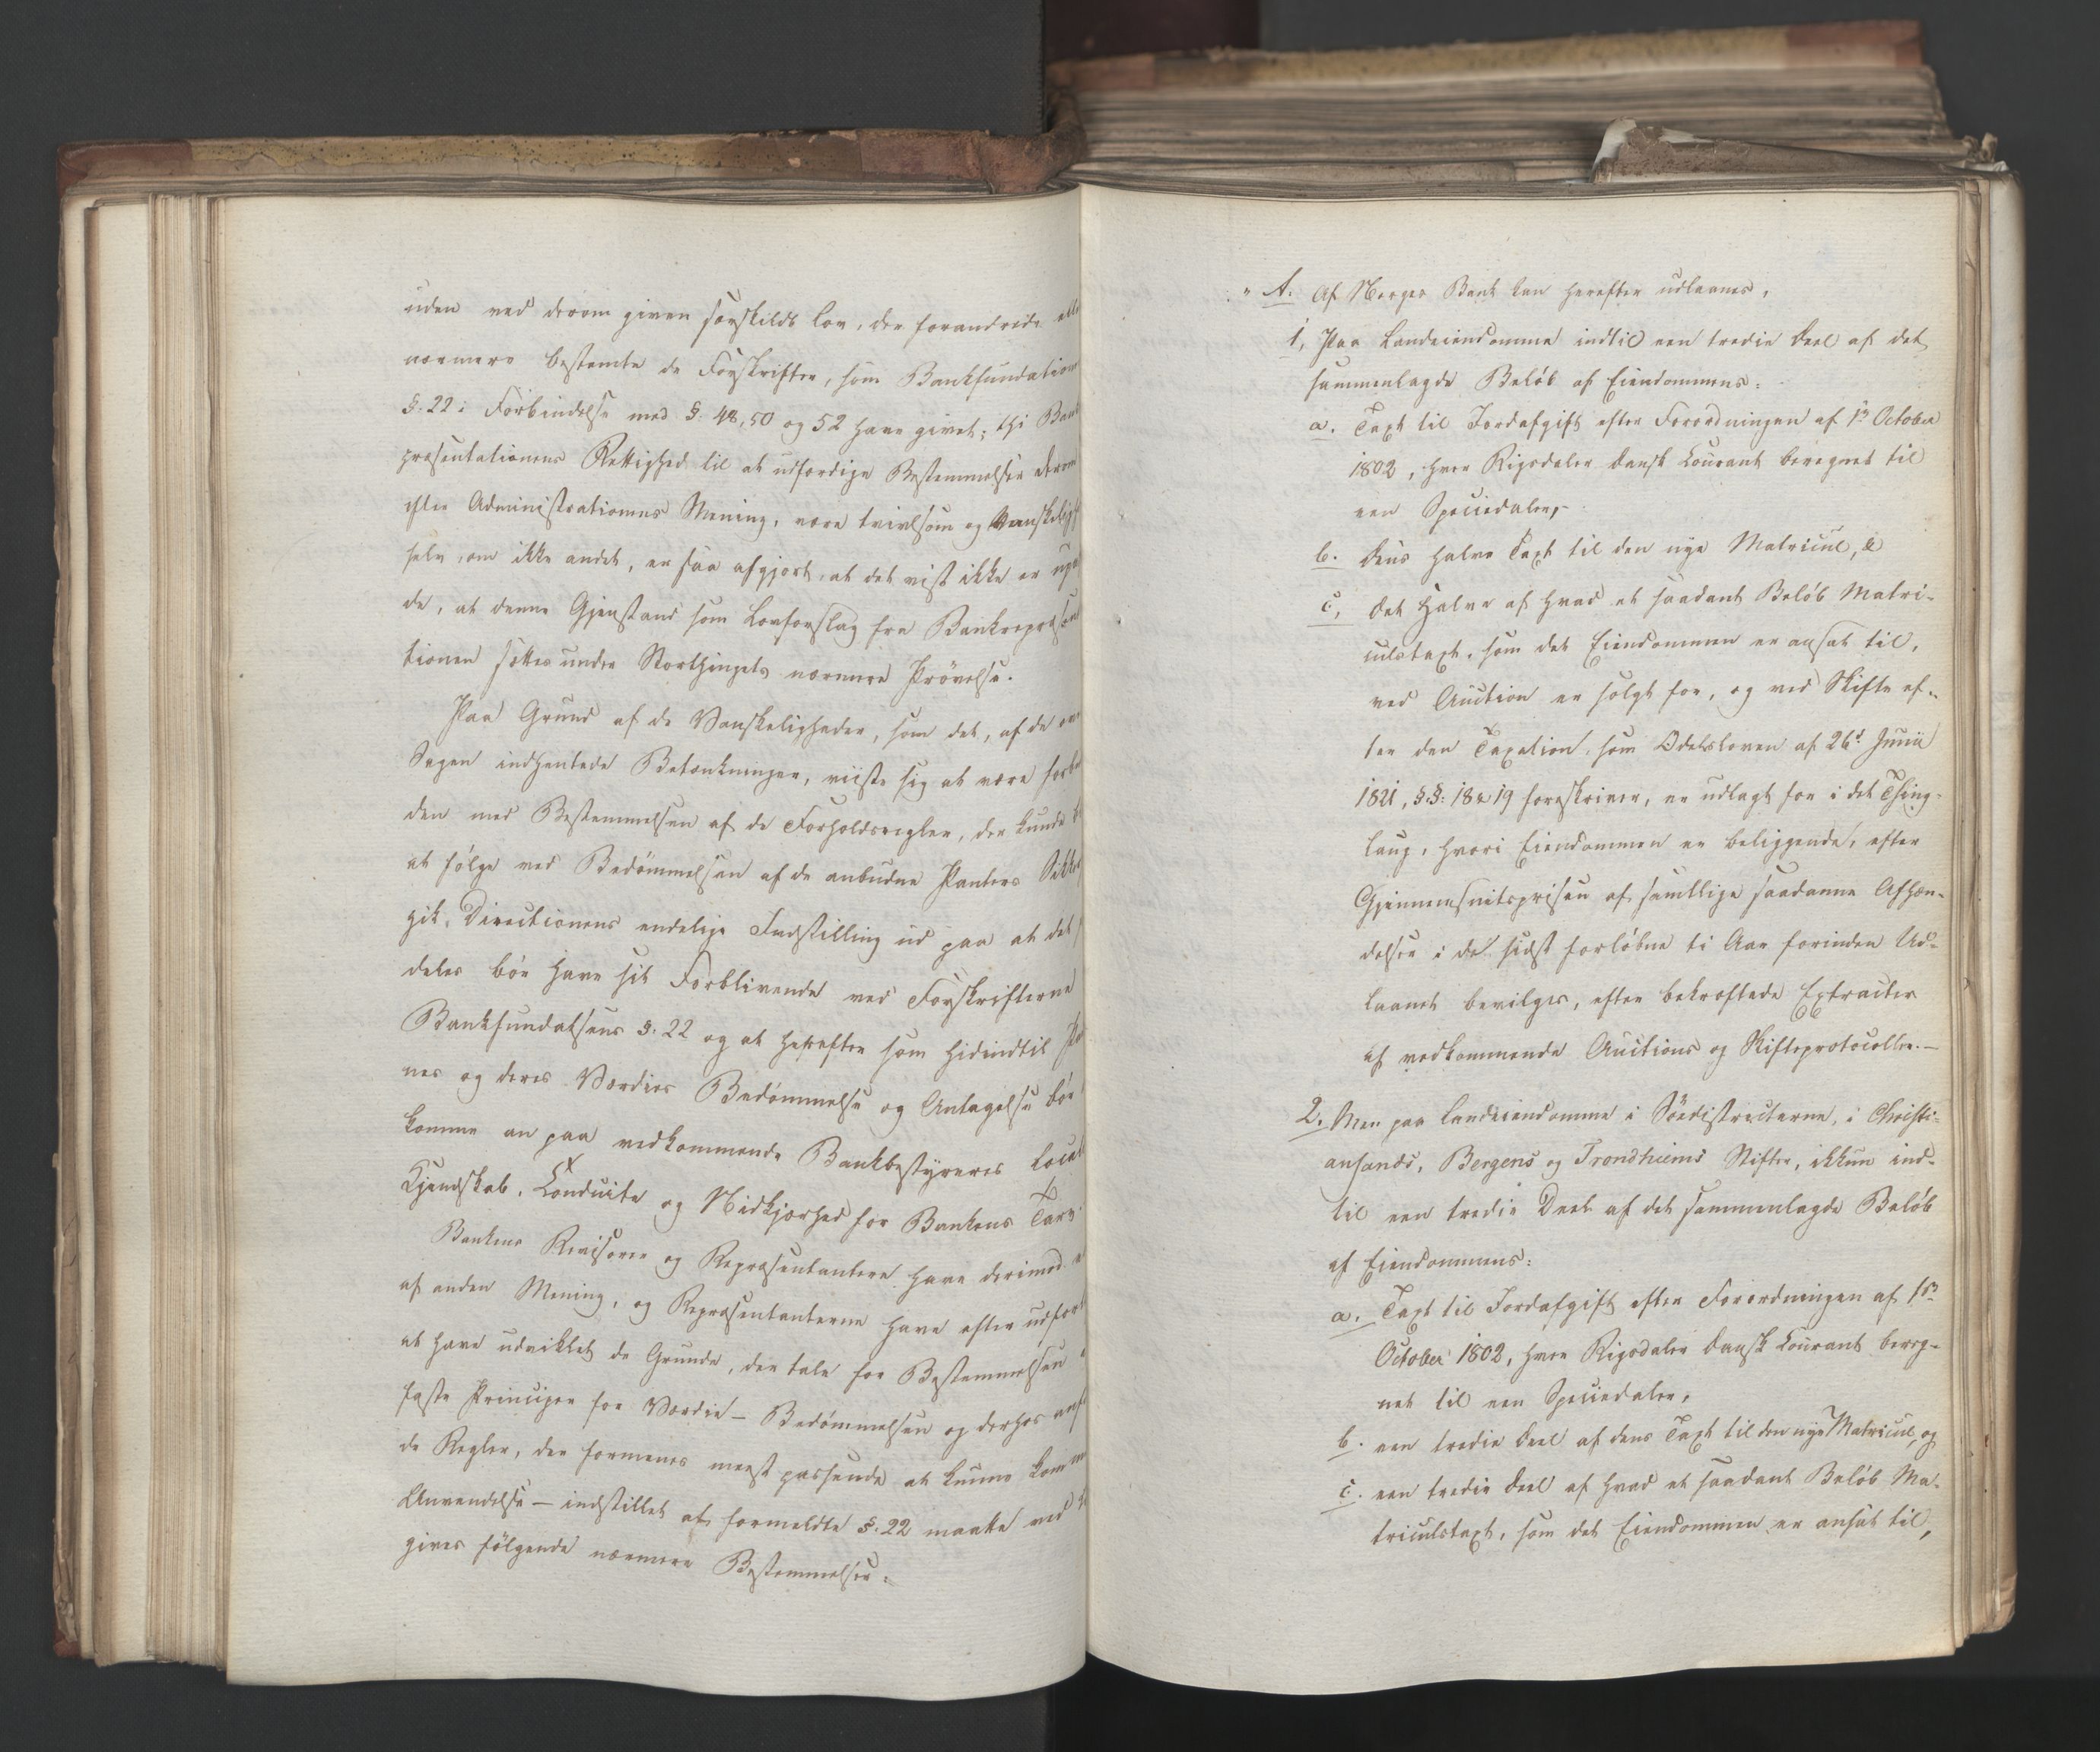 uden ved derom given særskildt Lov, der forandrede
nærmere bestemte de Forskrifter, som Bankfundationens
§. 22 i Forbindelse med §. 48, 50 og 52 have givet; thi Bank
præsentationens Rettighed til at udfærdige Bestemmelser derom
efter Administrationens Mening, være tvivlsom og Vanskelig
selv om ikke andet, er saa afgjort, at det vist ikke er
de, at denne Gjenstand som Lovforslag fra Bankrepræsen
tionen sættes under Storthingets nærmere Prövelse.
Paa Grund af de Vanskeligheder, som det, af de over
Sagen indhentede Betænkninger, viiste sig at være forbu
den med Bestemmelsen af de Forholdsregler, der kunde
at fölge ved Bedömmelsen af de anbudne Panters Sikker
gik Directionens endelige Indstilling ud paa at det
deles bör have sit Forblivende ved Forskrifterne
Bankfundatsens §. 22 og at herefter som hidindtil Pan
nes og deres Værdies Bedömmelse og Antagelse bör
komme an paa vedkommende Bankbestyreres Local
Kjendskab, Conduite og Nidkjærhed for Bankens Tarv.
Bankens Revisorer og Repræsentantere have derimod
af anden Mening, og Repræsentanterne have efter udför
at have udviklet de Grunde, der tale for Bestemmelsen
faste Principer for Værdie-Bedömmelsen og derhos anf
de Regler, der formenes meest passende at kunne komme
Anvendelse — indstillet at formeldte §. 22 maatte ved
gives fölgende nærmere Bestemmelser:
" A. Af Norges Bank kan herefter udlaanes,
1, Paa Landeiendomme indtil een tredie Deel af det
sammenlagde Belöb af Eiendommens:
a. Taxt til Jordafgift efter Forordningen af 1ste October
1802, hver Rigsdaler Dansk Courant beregnet til
een Speciedaler,
b. Dens halve Taxt til den nye Matricul, &
c, Det Halve af hvad et saadant Belöb Matri-
culstaxt, som det Eiendommen er ansat til,
ved Auction er solgt for, og ved Skifte ef-
ter den Taxation, som Odelsloven af 26de Junii
1821, §.§: 18 & 19 foreskriver, er udlagt for i det Thing-
laug, hvori Eiendommen er beliggende, efter
Gjennemsnitsprisen af samtlige saadanne Afhæn-
delser i de sidst forlöbne ti Aar forinden Ud-
laanet bevilges, efter bekræftede Extracter
af vedkommende Auctions og Skifteprotocoller.—
2. Men paa Landeiendomme i Södistricterne, i Christi-
ansands, Bergens og Trondhiems Stifter, ikkun ind-
til een tredie Deel af det sammenlagde Belöb
af Eiendommens:
a. Taxt til Jordafgift efter Forordningen af 1ste
October 1802, hver Rigsdaler Dansk Courant bereg-
net til een Speciedaler,
b. een tredie Deel af dens Taxt til den nye Matricul, og
c. een tredie Deel af hvad et saadant Belöb Ma-
triculstaxt, som det Eiendommen er ansat til,